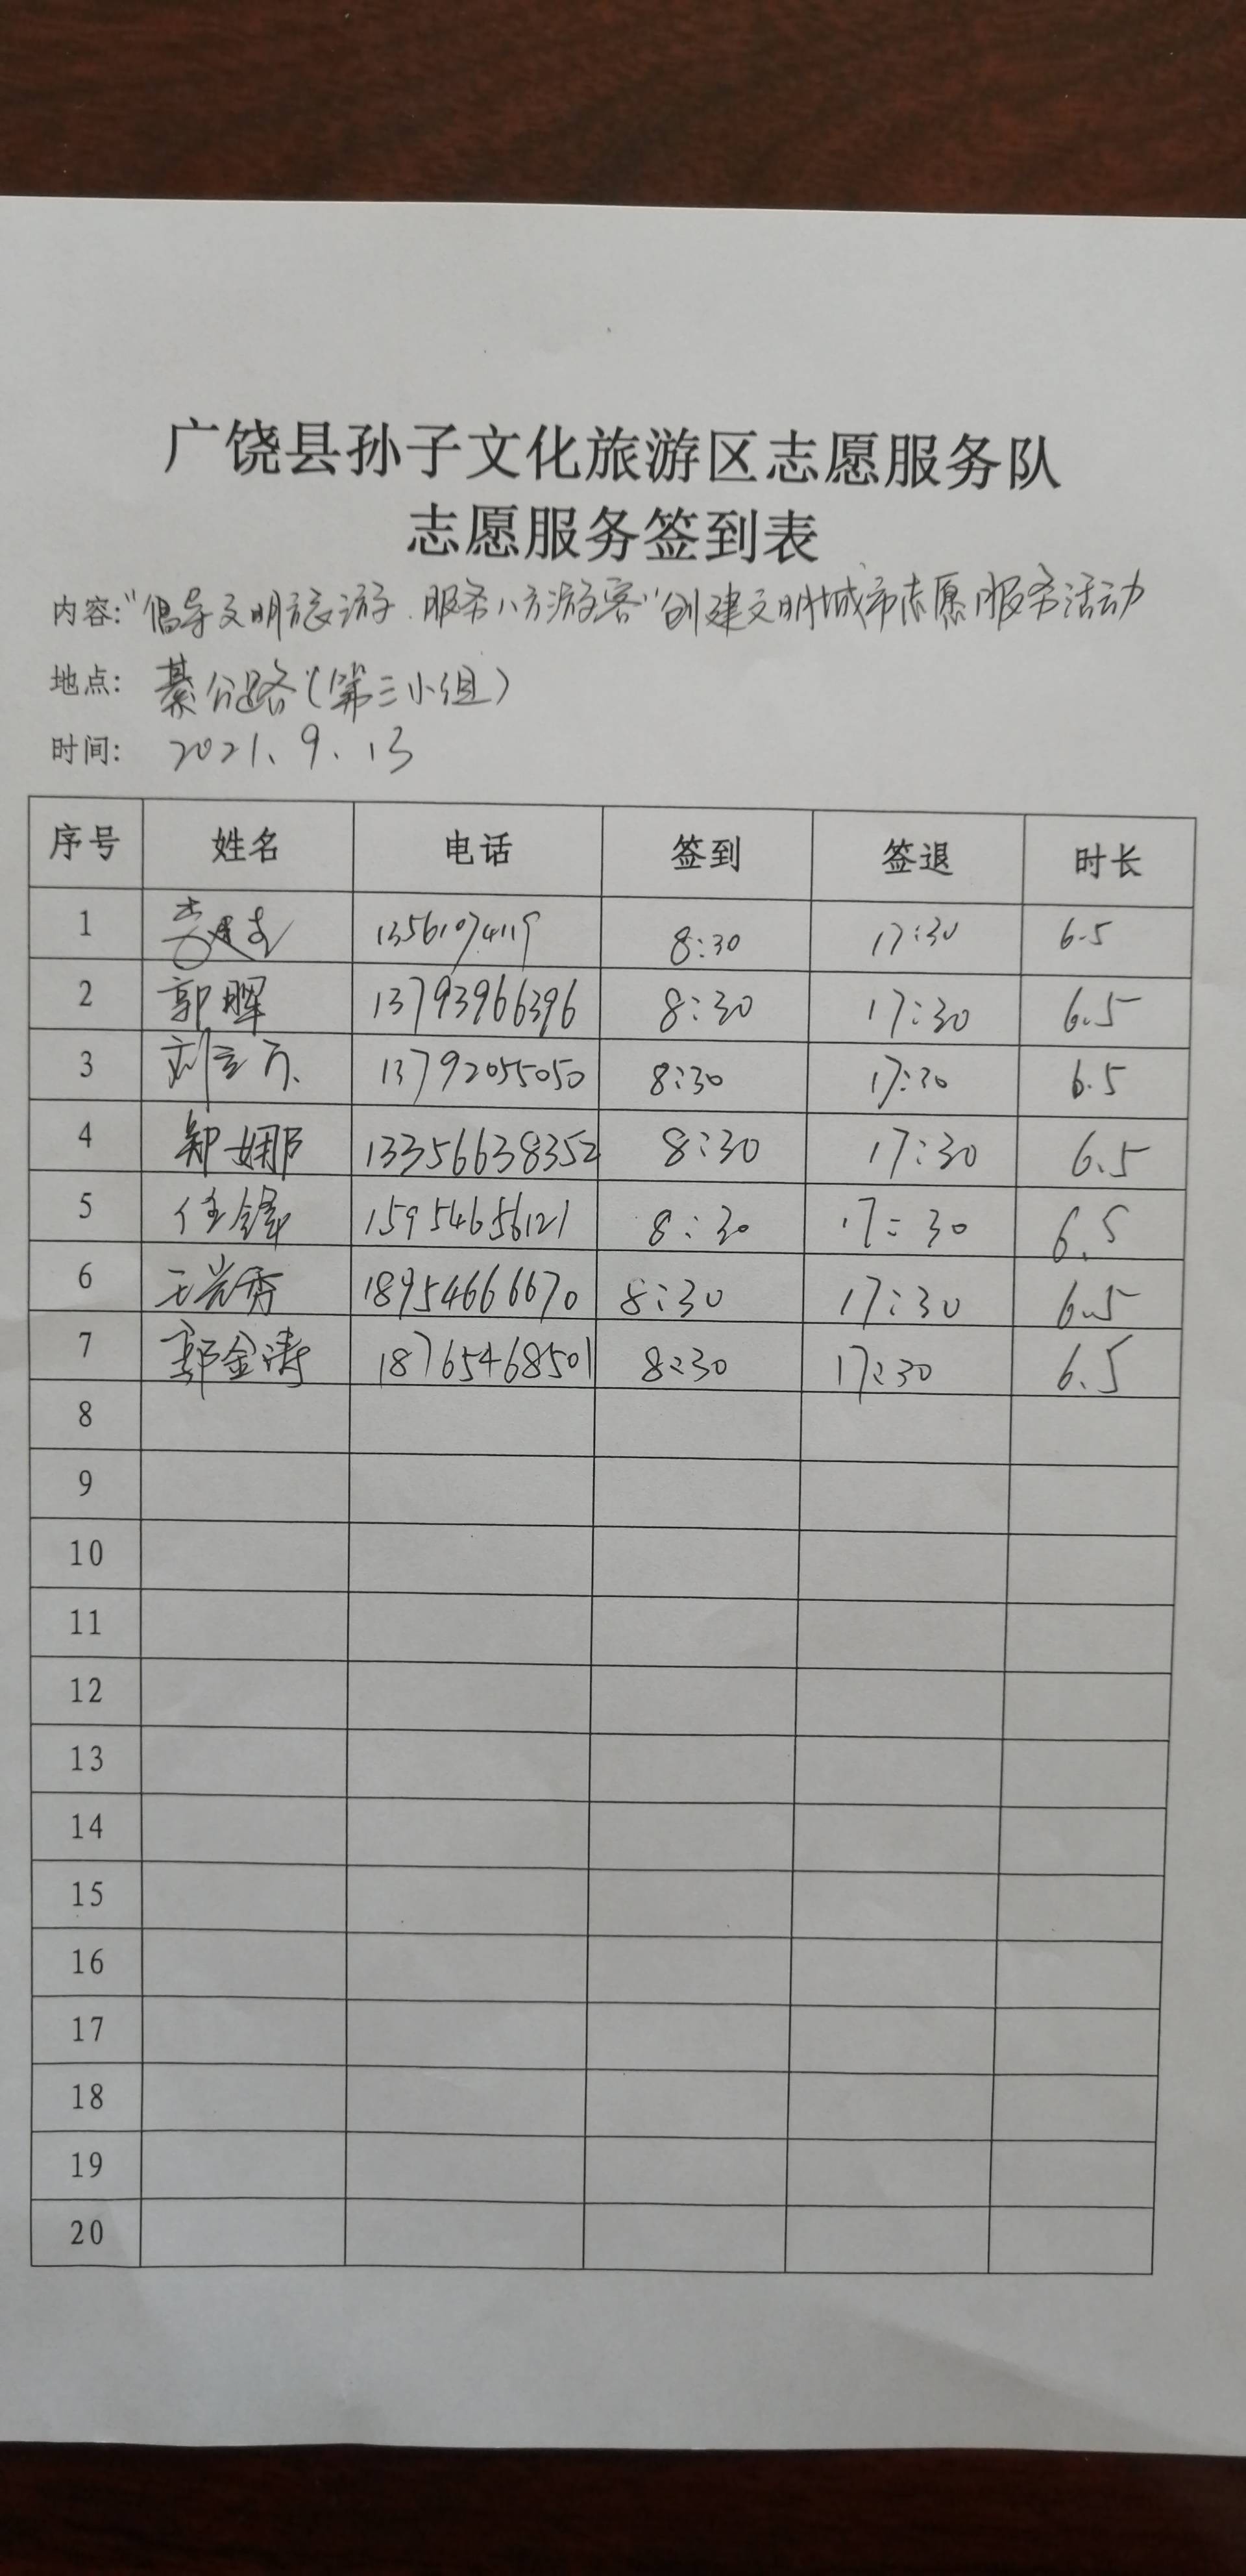 广饶县孙子文化旅游区志愿服务队
志愿服务签到表
内容:"倡导文明旅游.服务八方游客"创建文明城市志愿服务活动
地点: 綦公路(第三小组)
时间: 2021、9、13
序号 姓名 电话 签到 签退 时长
1 13561074119 8:30 17:30 6.5
2 郭晖 13793966396 8:30 17:30 6.5
3 13792055050 8:30 17:30 6.5
4 郑娜 13356638352 8:30 17:30 6.5
5 任锋 15954656121 8:30 17:30 6.5
6 王光秀 18954666670 8:30 17:30 6.5
7 郭金涛 18765468501 8:30 17:30 6.5
8
9
10
11
12
13
14
15
16
17
18
19
20